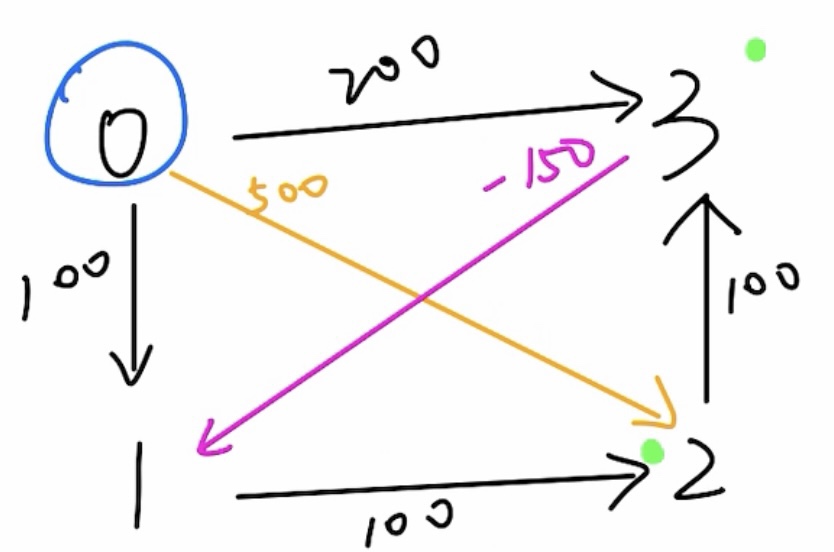 0
200
3
500
-150
100
100
1
100
2